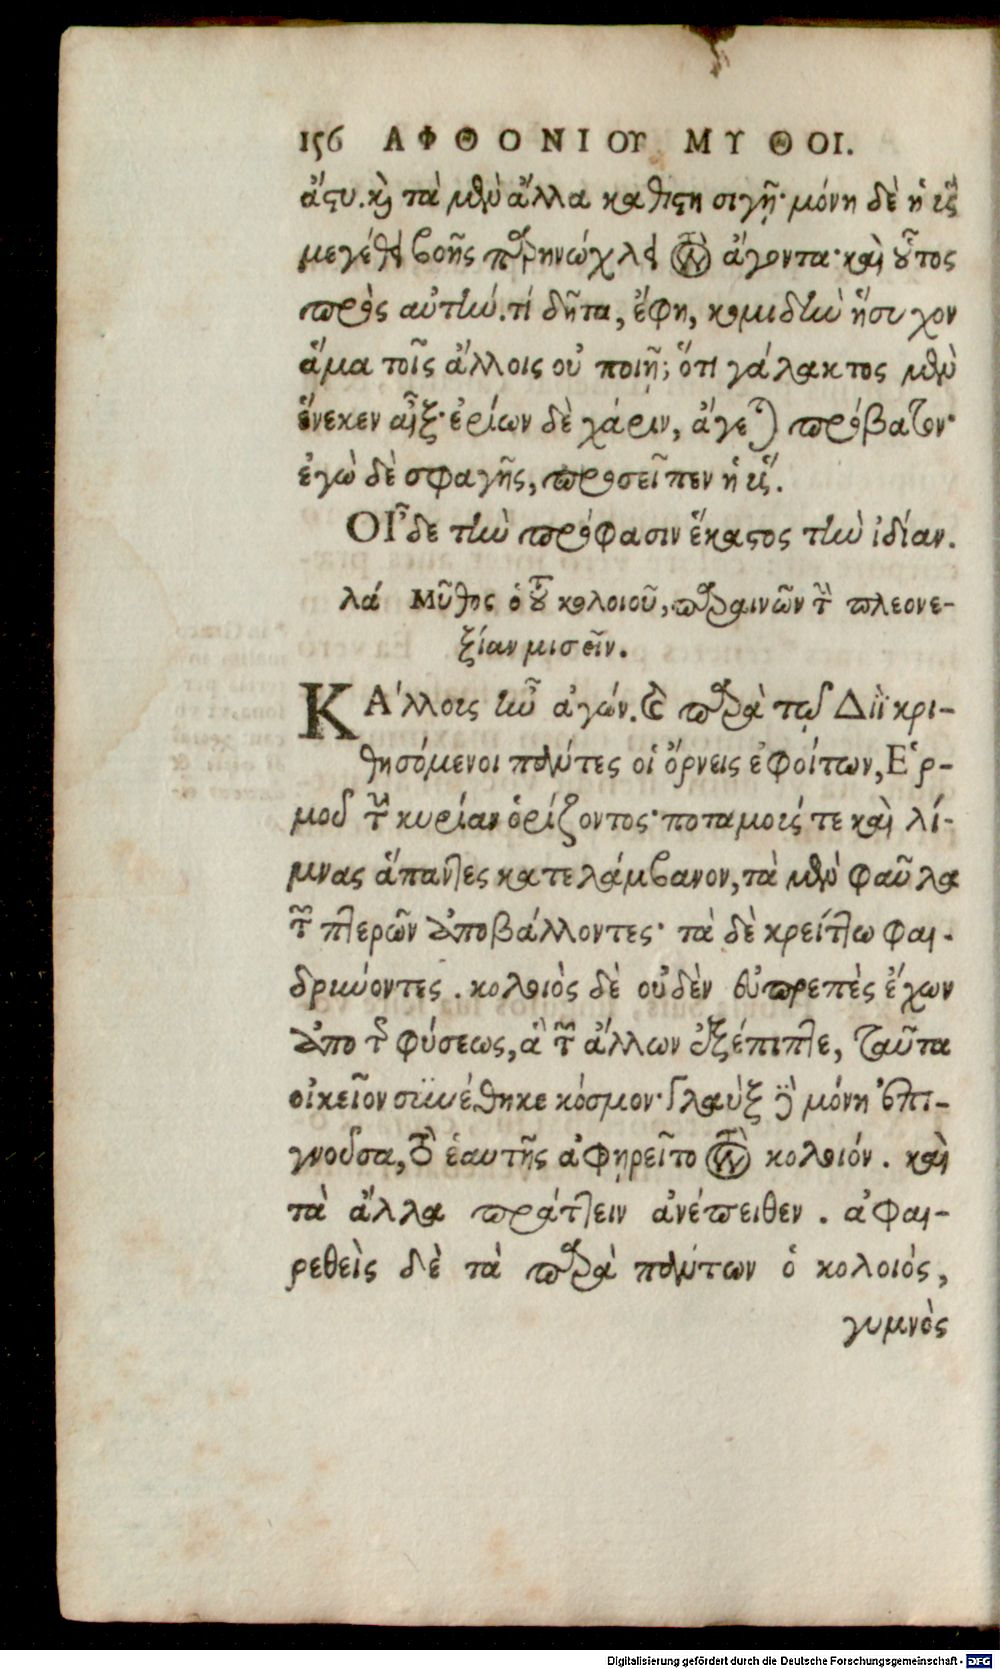 156 ΑΦΘΟΝΙΟΥ ΜΥΘΟΙ.
ἄςυ. καὶ τὰ μὲν ἄλλα καθῆςη σιγῇ· μόνη δὲ ἡ ὗς
μεγέθει βοῆς παρηνώχλει τὸν ἄγοντα· καὶ οὗτος
πρὸς αὐτὴν. τί δῆτα, ἔφη, κομιδὴν ἥσυχον
ἅμα τοῖς ἄλλοις οὐ ποιῇ; ὅτι γάλακτος μὲν
ἕνεκεν αἶξ· ἐρίων δὲ χάριν, ἄγεται πρόβατον·
ἐγὼ δὲ σφαγῆς, προσεῖπεν ἡ ὗς.
Οἶδε τὴν πρόφασιν ἕκαςος τὴν ἰδίαν.
λά Μῦθος ὁ τοῦ κολοιοῦ, παραινῶν τὴν πλεονε-
ξίαν μισεῖν.
ΚΑλλοις ἦν ἀγών. καὶ παρὰ τῷ Διῒ κρι-
θησόμενοι πάντες οἱ ὄρνεις ἐφοίτων, Ἑρ-
μοῦ τὴν κυρίαν ὁρίζοντος· ποταμοίς τε καὶ λί-
μνας ἅπαντες κατελάμβανον, τὰ μὲν φαῦλα
τῶν πτερῶν ἀποβάλλοντες· τὰ δὲ κρείττω φαι-
δρύνοντες. κολοιὸς δὲ οὐδὲν εὐπρεπὲς ἔχων
ἀπὸ τῆς φύσεως, ἃ τῶν ἄλλων ἐξέπιπτε, ταῦτα
οἰκεῖον συνέθηκε κόσμον· Γλαὺξ δὲ μόνη ἐπι-
γνοῦσα, τὸ ἑαυτῆς ἀφῃρεῖτο τὸν κολοιόν. καὶ
τὰ ἄλλα πράττειν ἀνέπειθεν. ἀφαι-
ρεθεὶς δὲ τὰ παρὰ πάντων ὁ κολοιός,
γυμνὸς
Digitalisierung gefördert durch die Deutsche Forschungsgemeinschaft - DFG